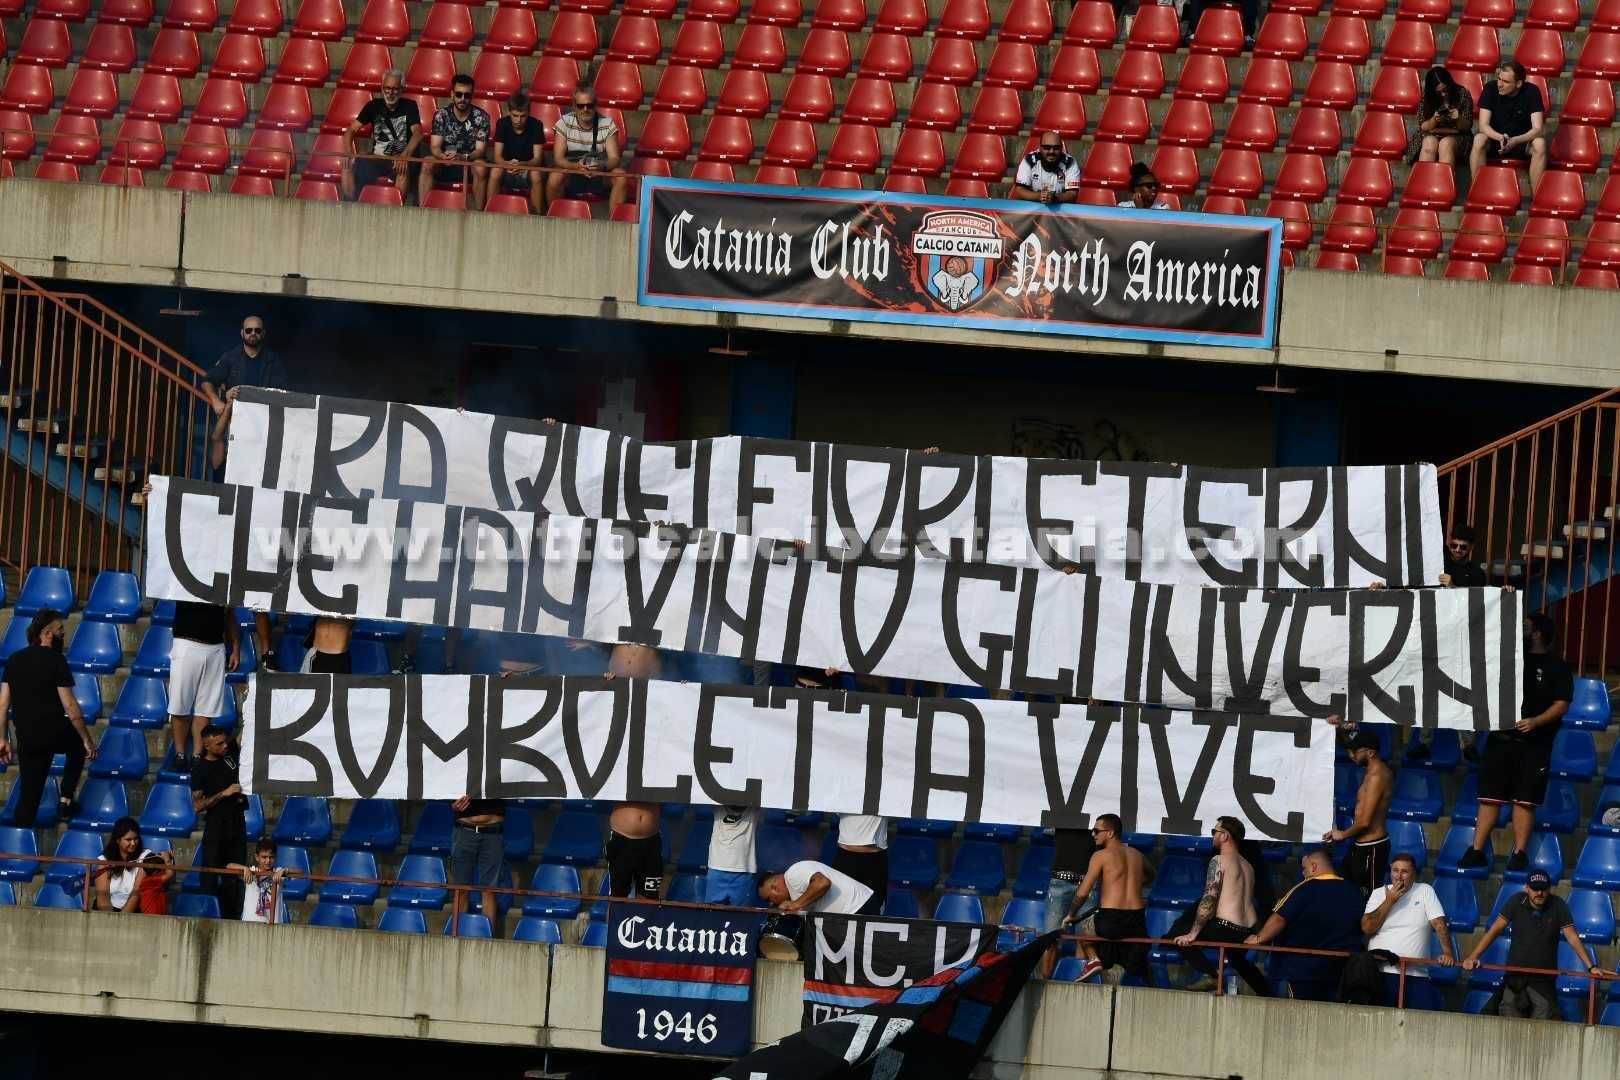 Catania Club North America
NORTH AMERICA
FANCLUB
CALCIO CATANIA
TRA QUEI FIORI ETERNI
www.tuttocalciocatania.com
CHE HAN VINTO GLI INVERNI
BOMBOLETTA VIVE
Catania
1946
MC. V